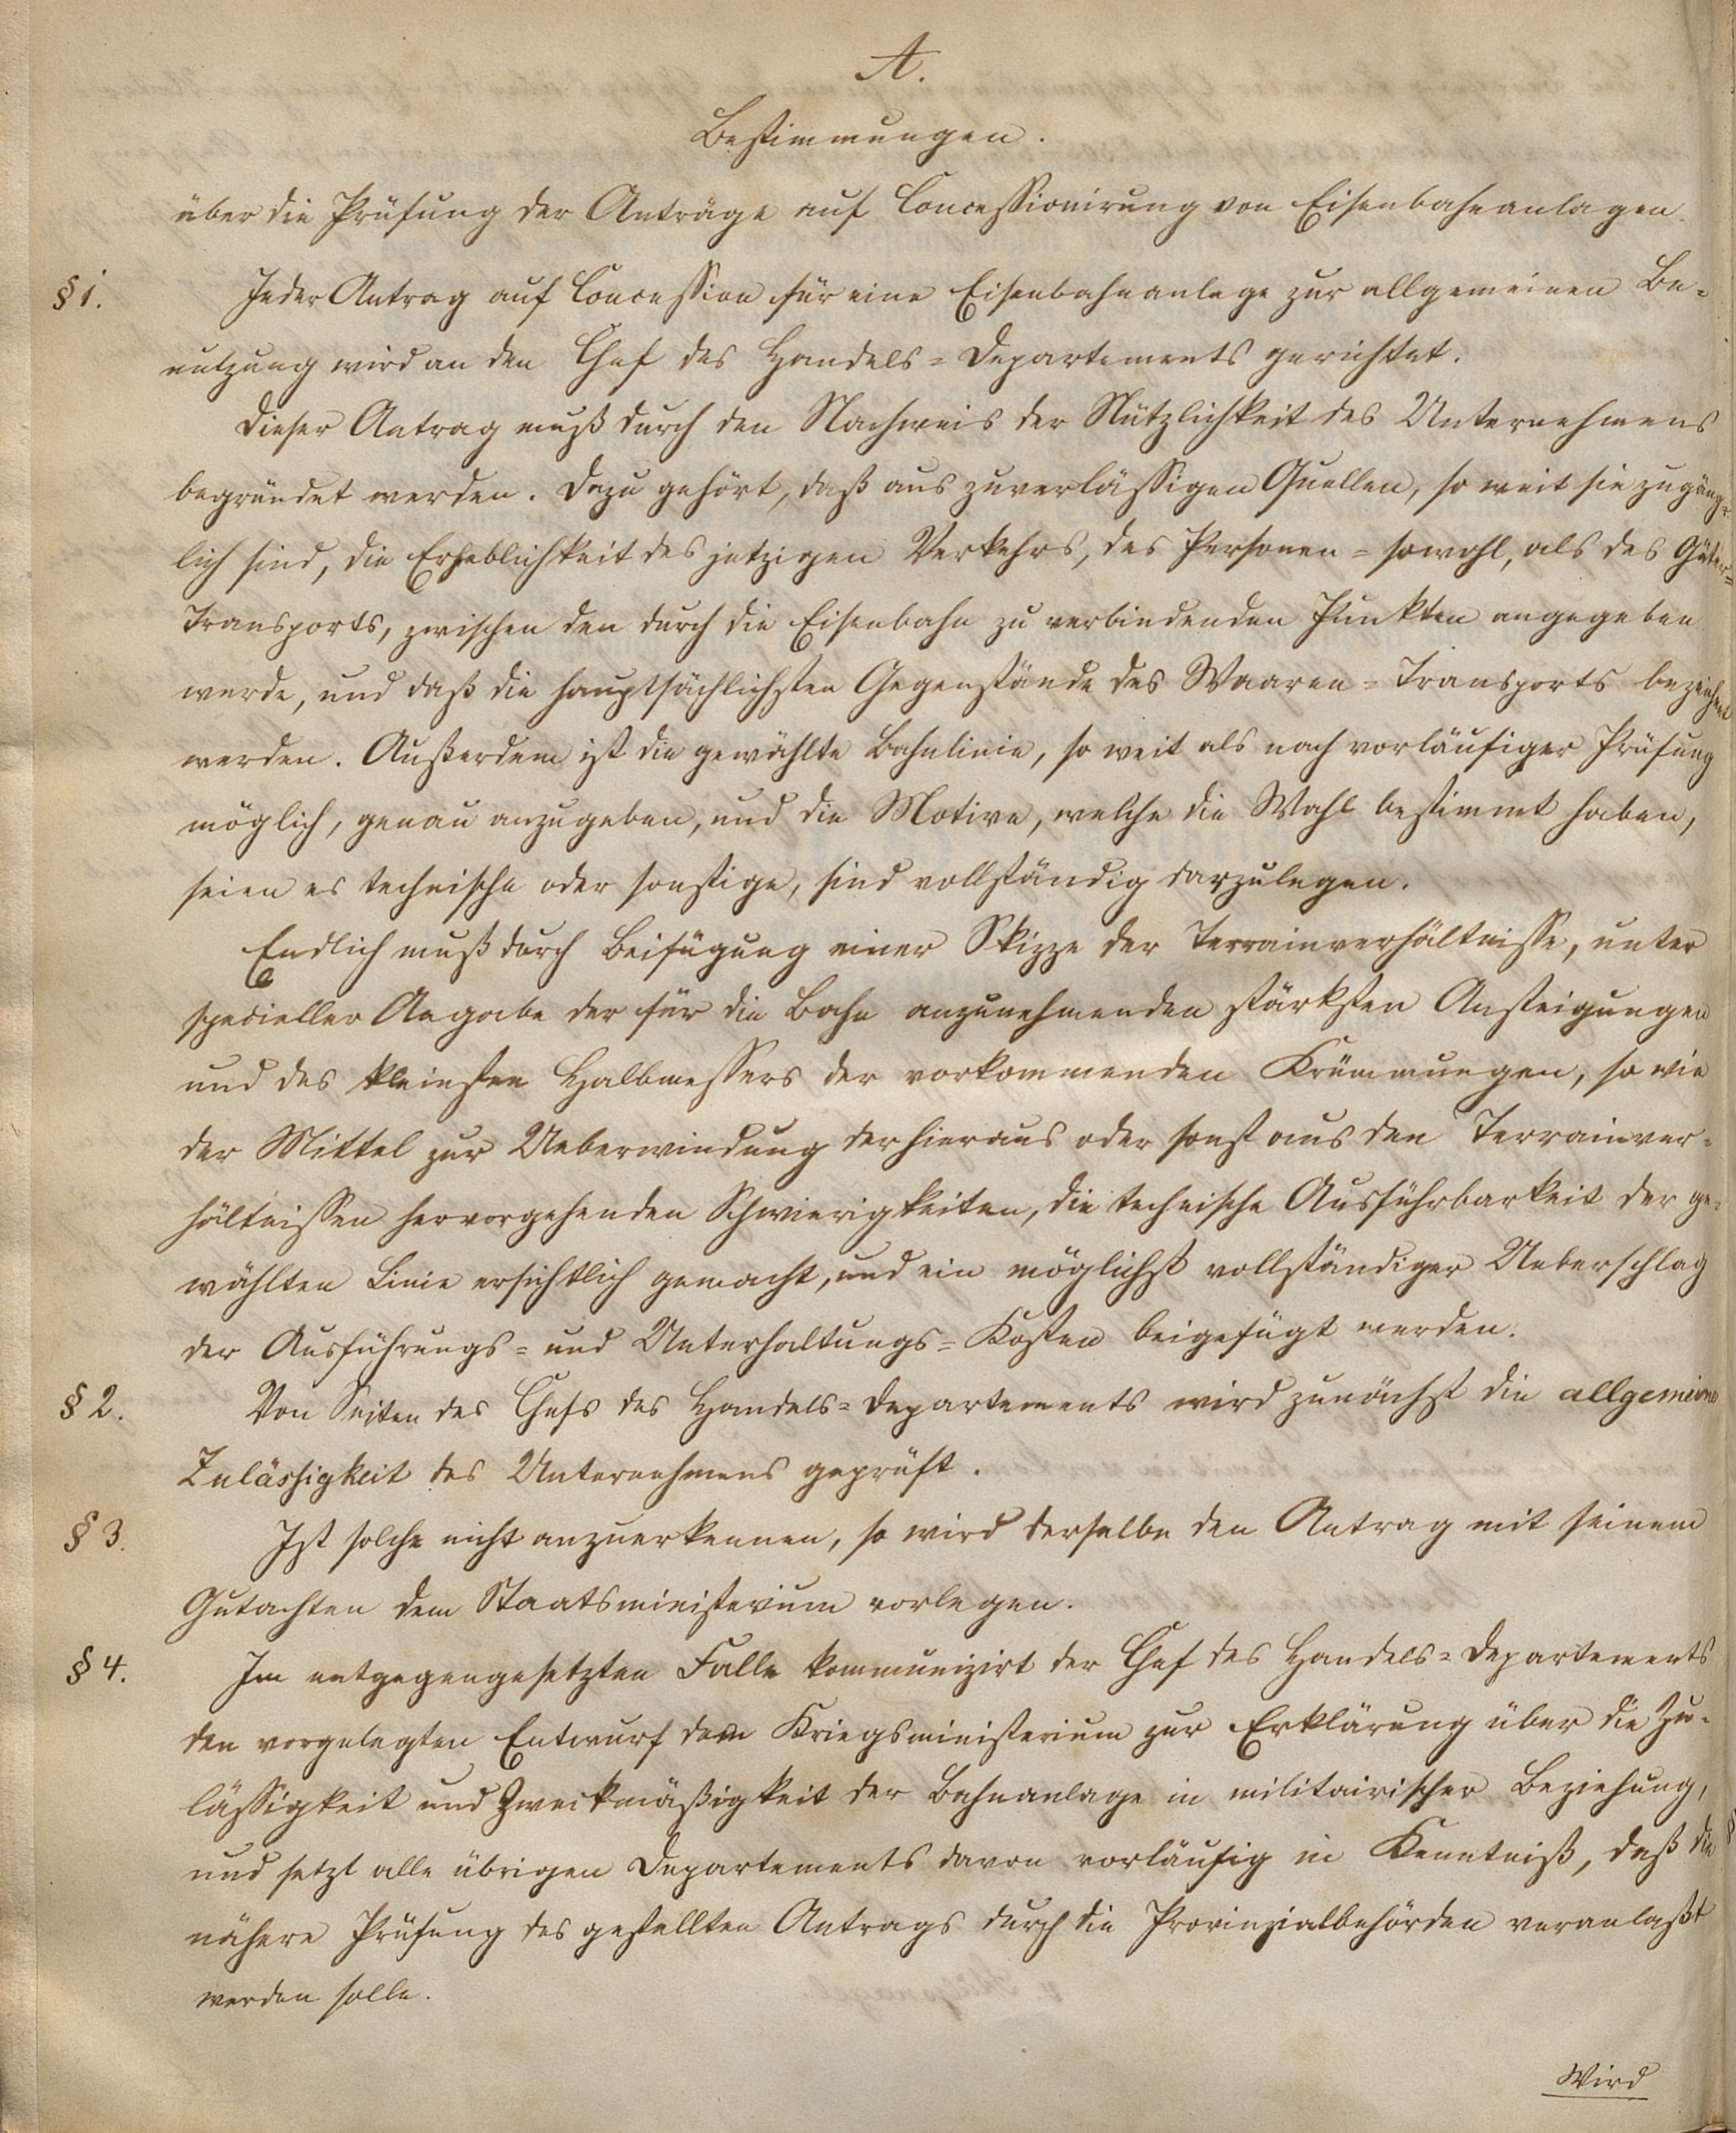 A.
Bestimmungen.
über die Prüfung der Anträge auf Concessionirung von Eisenbahnanlagen.
§ 1. Jeder Antrag auf Concession für eine Eisenbahnanlage zur allgemeinen Be-
nutzung wird an den Chef des Handels-Departements gerichtet.
Dieser Antrag muß durch den Nachweis der Nützlichkeit des Unternehmens
begründet werden. Dazu gehört, daß aus zuverlässigen Quellen, so weit sie zugäng-
lich sind, die Erheblichkeit des jetzigen Verkehrs, des Personen- sowohl, als des Güter-
Transports, zwischen den durch die Eisenbahn zu verbindenden Punkten angegeben
werde, und daß die hauptsächlichsten Gegenstände des Waaren-Transports bezeichnet
werden. Außerdem ist die gewählte Bahnlinie, so weit als nach vorläufiger Prüfung
möglich, genau anzugeben, und die Motive, welche die Wahl bestimmt haben,
seien es technische oder sonstige, sind vollständig darzulegen.
Endlich muß durch Beifügung einer Skizze der Terrainverhältnisse, unter
specieller Angabe der für die Bahn anzunehmenden stärksten Ansteigungen
und des kleinsten Halbmessers der vorkommenden Krümmungen, so wie
der Mittel zur Ueberwindung der hieraus oder sonst aus den Terrainver-
hältnissen hervorgehenden Schwierigkeiten, die technische Ausführbarkeit der ge-
wählten Linie ersichtlich gemacht, und ein möglichst vollständiger Ueberschlag
der Ausführungs- und Unterhaltungs-Kosten beigefügt werden.
§ 2. Von Seiten des Chefs des Handels-Departements wird zunächst die allgemeine
Zulässigkeit des Unternehmens geprüft.
§ 3. Ist solche nicht anzuerkennen, so wird derselbe den Antrag mit seinem
Gutachten dem Staatsministerium vorlegen.
§ 4. Im entgegengesetzten Falle kommunizirt der Chef des Handels-Departements
den vorgelegten Entwurf dem Kriegsministerium zur Erklärung über die Zu-
lässigkeit und Zweckmäßigkeit der Bahnanlage in militairischer Beziehung,
und setzt alle übrigen Departements davon vorläufig in Kenntniß, daß die
nähere Prüfung des gestellten Antrags durch die Provinzialbehörden veranlaßt
werden solle.
Wird